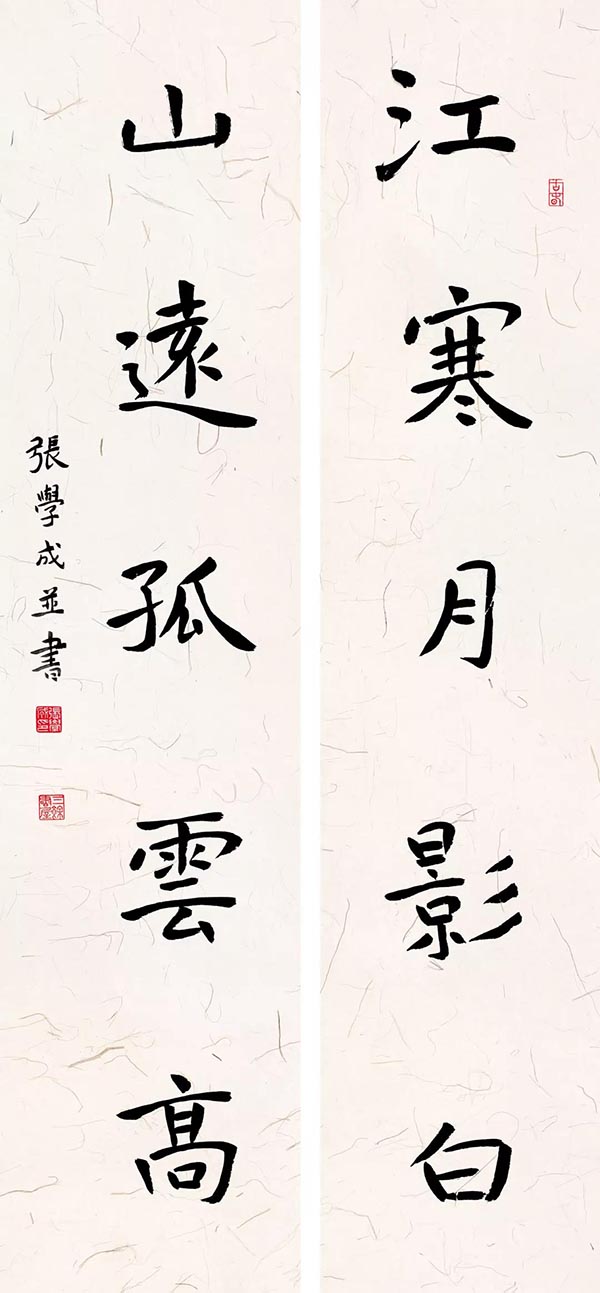 江寒月影白
山遠孤雲高
張學成並書